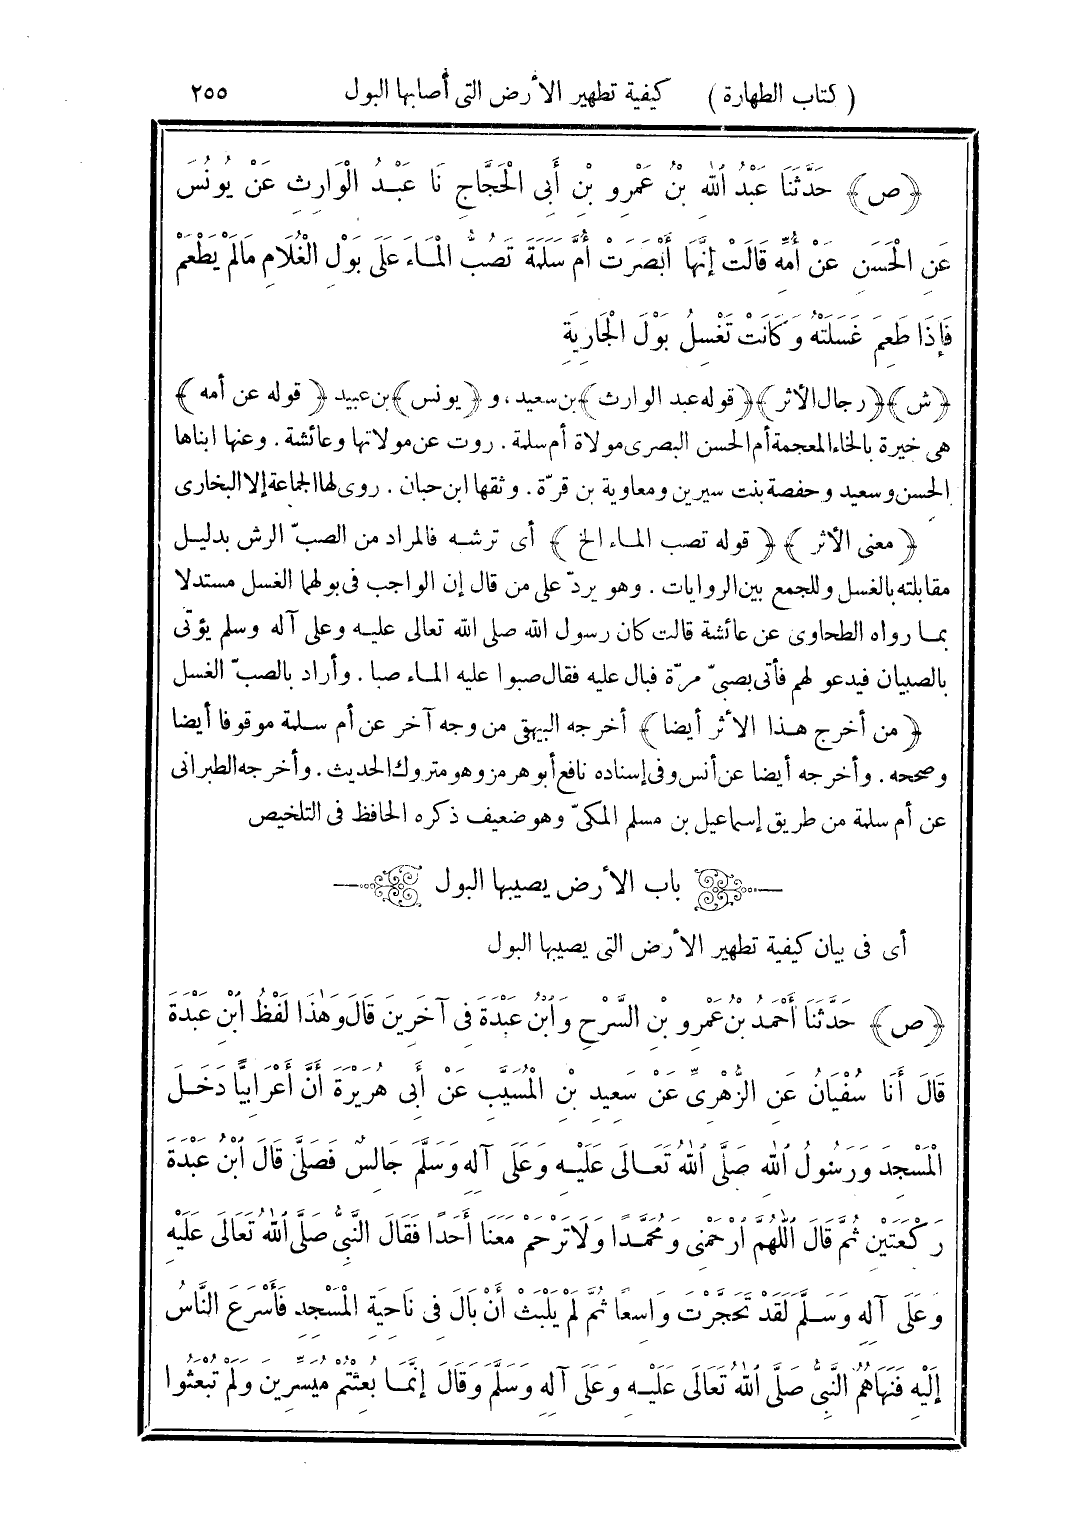 ( كتاب الطهارة ) كيفية تطهير الأرض التى أصابها البول ٢٥٥
﴿ ص ﴾ حَدَّثَنَا عَبْدُ اللهِ بْنُ عَمْرِو بْنِ أَبِى الْحَجَّاجِ نَا عَبْدُ الْوَارِثِ عَنْ يُونُسَ
عَنِ الْحَسَنِ عَنْ أُمِّهِ قَالَتْ إِنَّهَا أَبْصَرَتْ أُمَّ سَلَمَةَ تَصُبُّ الْمَاءَ عَلَى بَوْلِ الْغُلَامِ مَالَمْ يَطْعَمْ
فَإِذَا طَعِمَ غَسَلَتْهُ وَكَانَتْ تَغْسِلُ بَوْلَ الْجَارِيَةِ
﴿ ش ﴾ ﴿ رجال الأثر ﴾ ﴿ قوله عبد الوارث ﴾ بن سعيد، و ﴿ يونس ﴾ بن عبيد ﴿ قوله عن أمه ﴾
هى خيرة بالخاء المعجمة أم الحسن البصرى مولاة أم سلمة . روت عن مولاتها وعائشة . وعنها ابناها
الحسن وسعيد وحفصة بنت سيرين ومعاوية بن قرّة . وثقها ابن حبان . روى لها الجماعة إلا البخارى
﴿ معنى الأثر ﴾ ﴿ قوله تصب الماء الخ ﴾ أى ترشه فالمراد من الصبّ الرش بدليل
مقابلته بالغسل وللجمع بين الروايات . وهو يردّ على من قال إن الواجب فى بولهما الغسل مستدلا
بما رواه الطحاوى عن عائشة قالت كان رسول الله صلى الله تعالى عليه وعلى آله وسلم يؤتى
بالصبيان فيدعو لهم فأتى بصبىّ مرّة فبال عليه فقال صبوا عليه الماء صبا . وأراد بالصبّ الغسل
﴿ من أخرج هذا الأثر أيضا ﴾ أخرجه البيهقى من وجه آخر عن أم سلمة موقوفا أيضا
وصححه . وأخرجه أيضا عن أنس وفى إسناده نافع أبو هرمز وهو متروك الحديث . وأخرجه الطبرانى
عن أم سلمة من طريق إسماعيل بن مسلم المكىّ وهو ضعيف ذكره الحافظ فى التلخيص
باب الأرض يصيبها البول
أى فى بيان كيفية تطهير الأرض التى يصيبها البول
﴿ ص ﴾ حَدَّثَنَا أَحْمَدُ بْنُ عَمْرِو بْنِ السَّرْحِ وَابْنُ عَبْدَةَ فِى آخَرِينَ قَالَ وَهٰذَا لَفْظُ ابْنِ عَبْدَةَ
قَالَ أَنَا سُفْيَانُ عَنِ الزُّهْرِىِّ عَنْ سَعِيدِ بْنِ الْمُسَيَّبِ عَنْ أَبِى هُرَيْرَةَ أَنَّ أَعْرَابِيًّا دَخَلَ
الْمَسْجِدَ وَرَسُولُ اللهِ صَلَّى اللهُ تَعَالَى عَلَيْهِ وَعَلَى آلِهِ وَسَلَّمَ جَالِسٌ فَصَلَّى قَالَ ابْنُ عَبْدَةَ
رَكْعَتَيْنِ ثُمَّ قَالَ اللّٰهُمَّ ارْحَمْنِى وَمُحَمَّدًا وَلَا تَرْحَمْ مَعَنَا أَحَدًا فَقَالَ النَّبِىُّ صَلَّى اللهُ تَعَالَى عَلَيْهِ
وَعَلَى آلِهِ وَسَلَّمَ لَقَدْ تَحَجَّرْتَ وَاسِعًا ثُمَّ لَمْ يَلْبَثْ أَنْ بَالَ فِى نَاحِيَةِ الْمَسْجِدِ فَأَسْرَعَ النَّاسُ
إِلَيْهِ فَنَهَاهُمُ النَّبِىُّ صَلَّى اللهُ تَعَالَى عَلَيْهِ وَعَلَى آلِهِ وَسَلَّمَ وَقَالَ إِنَّمَا بُعِثْتُمْ مُيَسِّرِينَ وَلَمْ تُبْعَثُوا